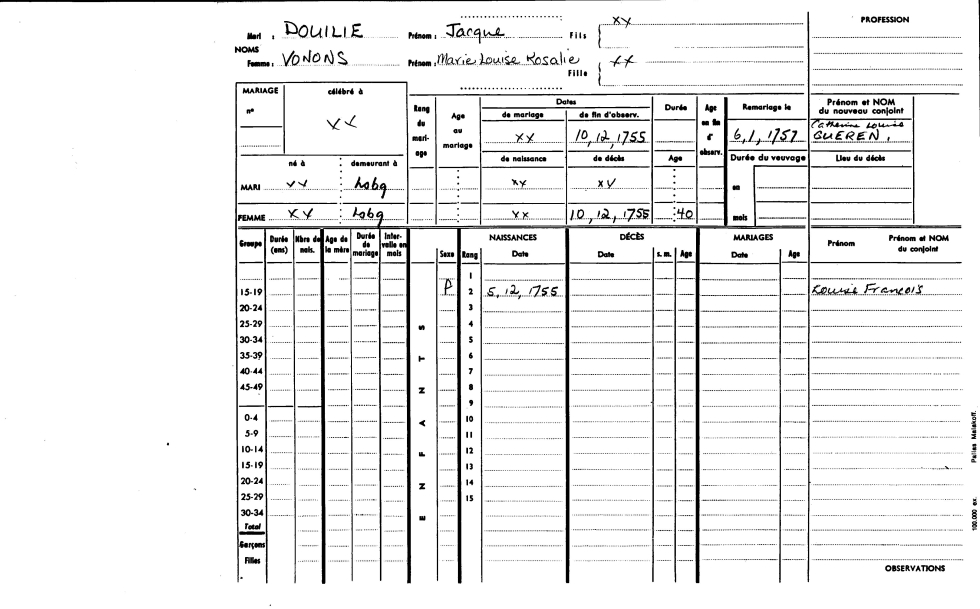 Mari : DOUILIE Prénom : Jacque Fils xy PROFESSION
NOMS
Femme : VONONS Prénom : Marie Louise Rosalie Fille xx
MARIAGE célébré à
n° xx
Rang du mariage
Age au mariage
Dates
de mariage de fin d'observ.
xx 10, 12, 1755
Durée
Age en fin d'observ.
Remariage le
6, 1, 1757
Prénom et NOM du nouveau conjoint
Catherine Louise
GUEREN.
né à demeurant à de naissance de décès Age Durée du veuvage Lieu du décès
MARI xx Lobg xx xv en
FEMME xx Lobg xx 10, 12, 1755 40 mois
Groupe Durée (ans) Nbre de nais. Age de la mère Durée de mariage Intervalle en mois Sexe Rang NAISSANCES Date DÉCÈS Date s. m. Age MARIAGES Date Age Prénom Prénom et NOM du conjoint
ENFANTS
1
15-19 P 2 5, 12, 1755 Louise François
20-24 3
25-29 4
30-34 5
35-39 6
40-44 7
45-49 8
9
0-4 10
5-9 11
10-14 12
15-19 13
20-24 14
25-29 15
30-34
Total
Garçons
Filles
OBSERVATIONS
100.000 ex. Pallas Malakoff.